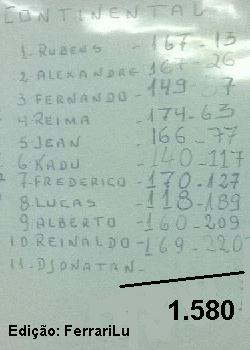 CONTINENTAL
1-RUBENS - 167-13
2 ALEXANDRE 167-26
3 FERNANDO - 149 7
4 REIMA - 174-63
5 JEAN - 166-77
6-KADU - 140-117
7-FREDERICO - 170.127
8 LUCAS - 118-189
9 ALBERTO - 160-209
10 REINALDO - 169-220
11-DJONATAN-
1.580
Edição: FerrariLu